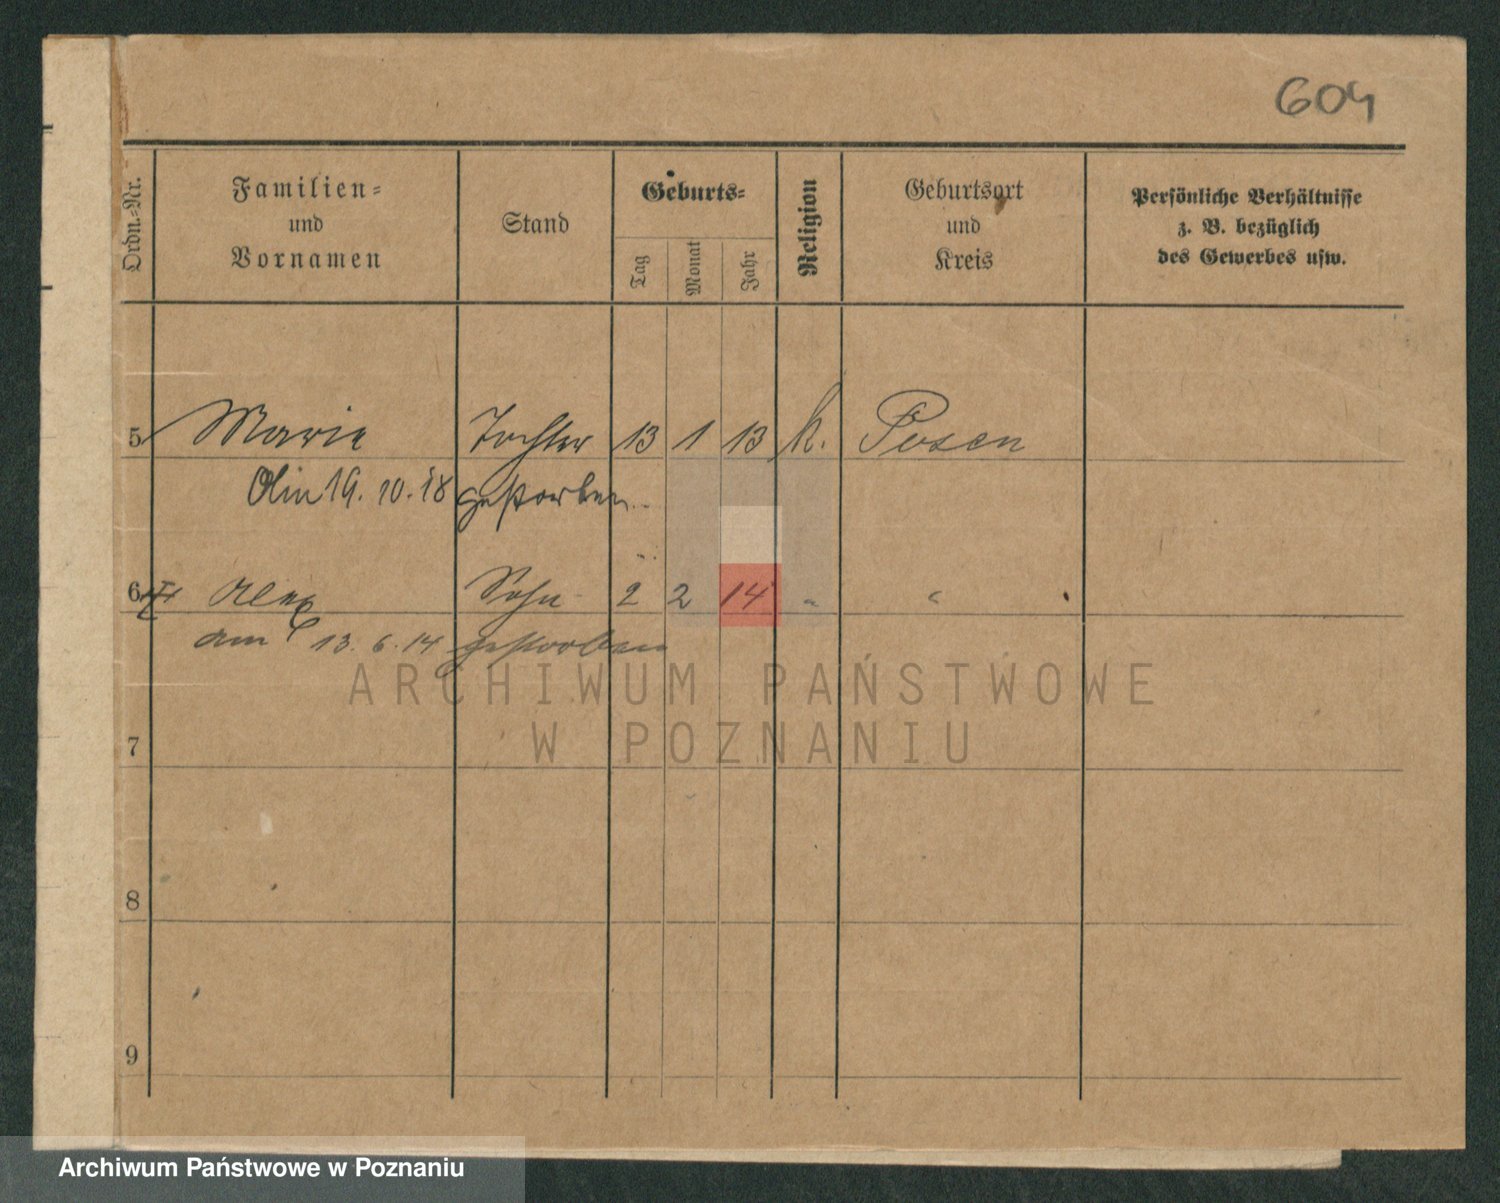 604
Ordn.-Nr.
Familien-
und
Vornamen
Stand
Geburts-
Tag
Monat
Jahr
Religion
Geburtsort
und
Kreis
Persönliche Verhältnisse
z. B. bezüglich
des Gewerbes usw.
5 Marie Tochter 13 1 13 k. Posen
19. 10. 18 gestorben
6 Alex Sohn 2 2 14 " "
am 13. 6. 14 gestorben
7
8
9
ARCHIWUM PAŃSTWOWE
W POZNANIU
Archiwum Państwowe w Poznaniu